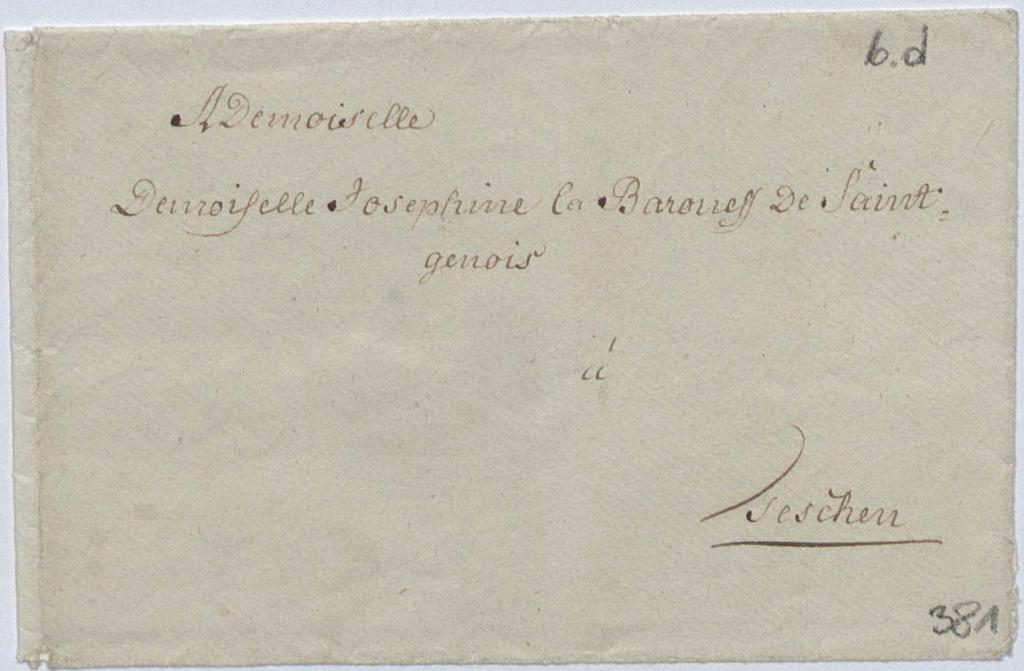 b.d
A Demoiselle
Demoiſelle Josephine la Baroneſs De Saint-
genois
à
Teschen
381